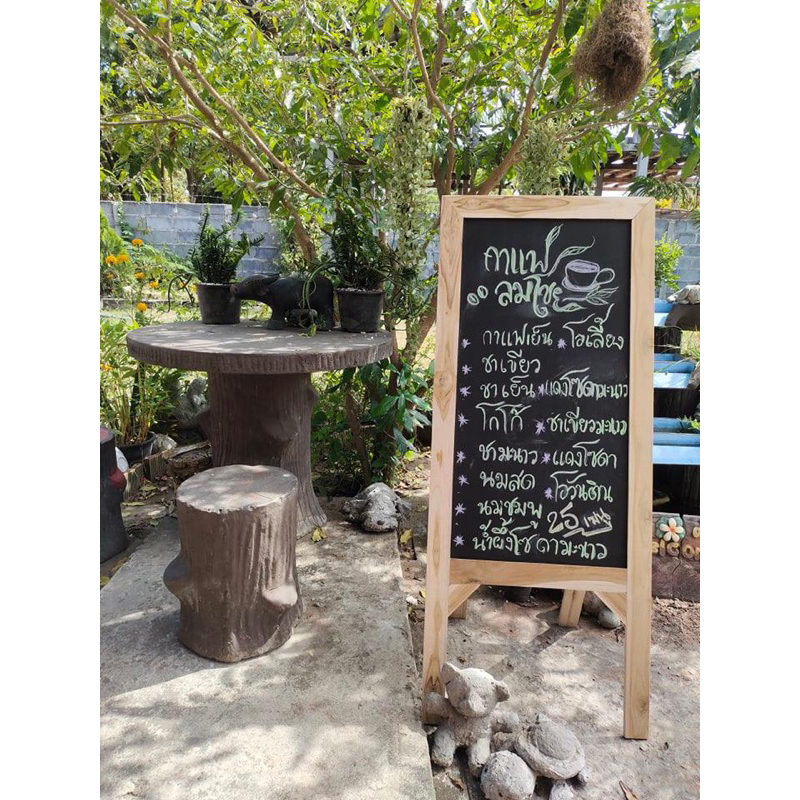 กาแฟ
ลมโชย
กาแฟเย็น * โอเลี้ยง
* ชาเขียว
* ชาเย็น * แดงโซดามะนาว
* โกโก้ * ชาเขียวมะนาว
* ชามะนาว * แดงโซดา
* นมสด * โอวันติน
* นมชมพู 25
* น้ำผึ้งโซดามะนาว
BIG